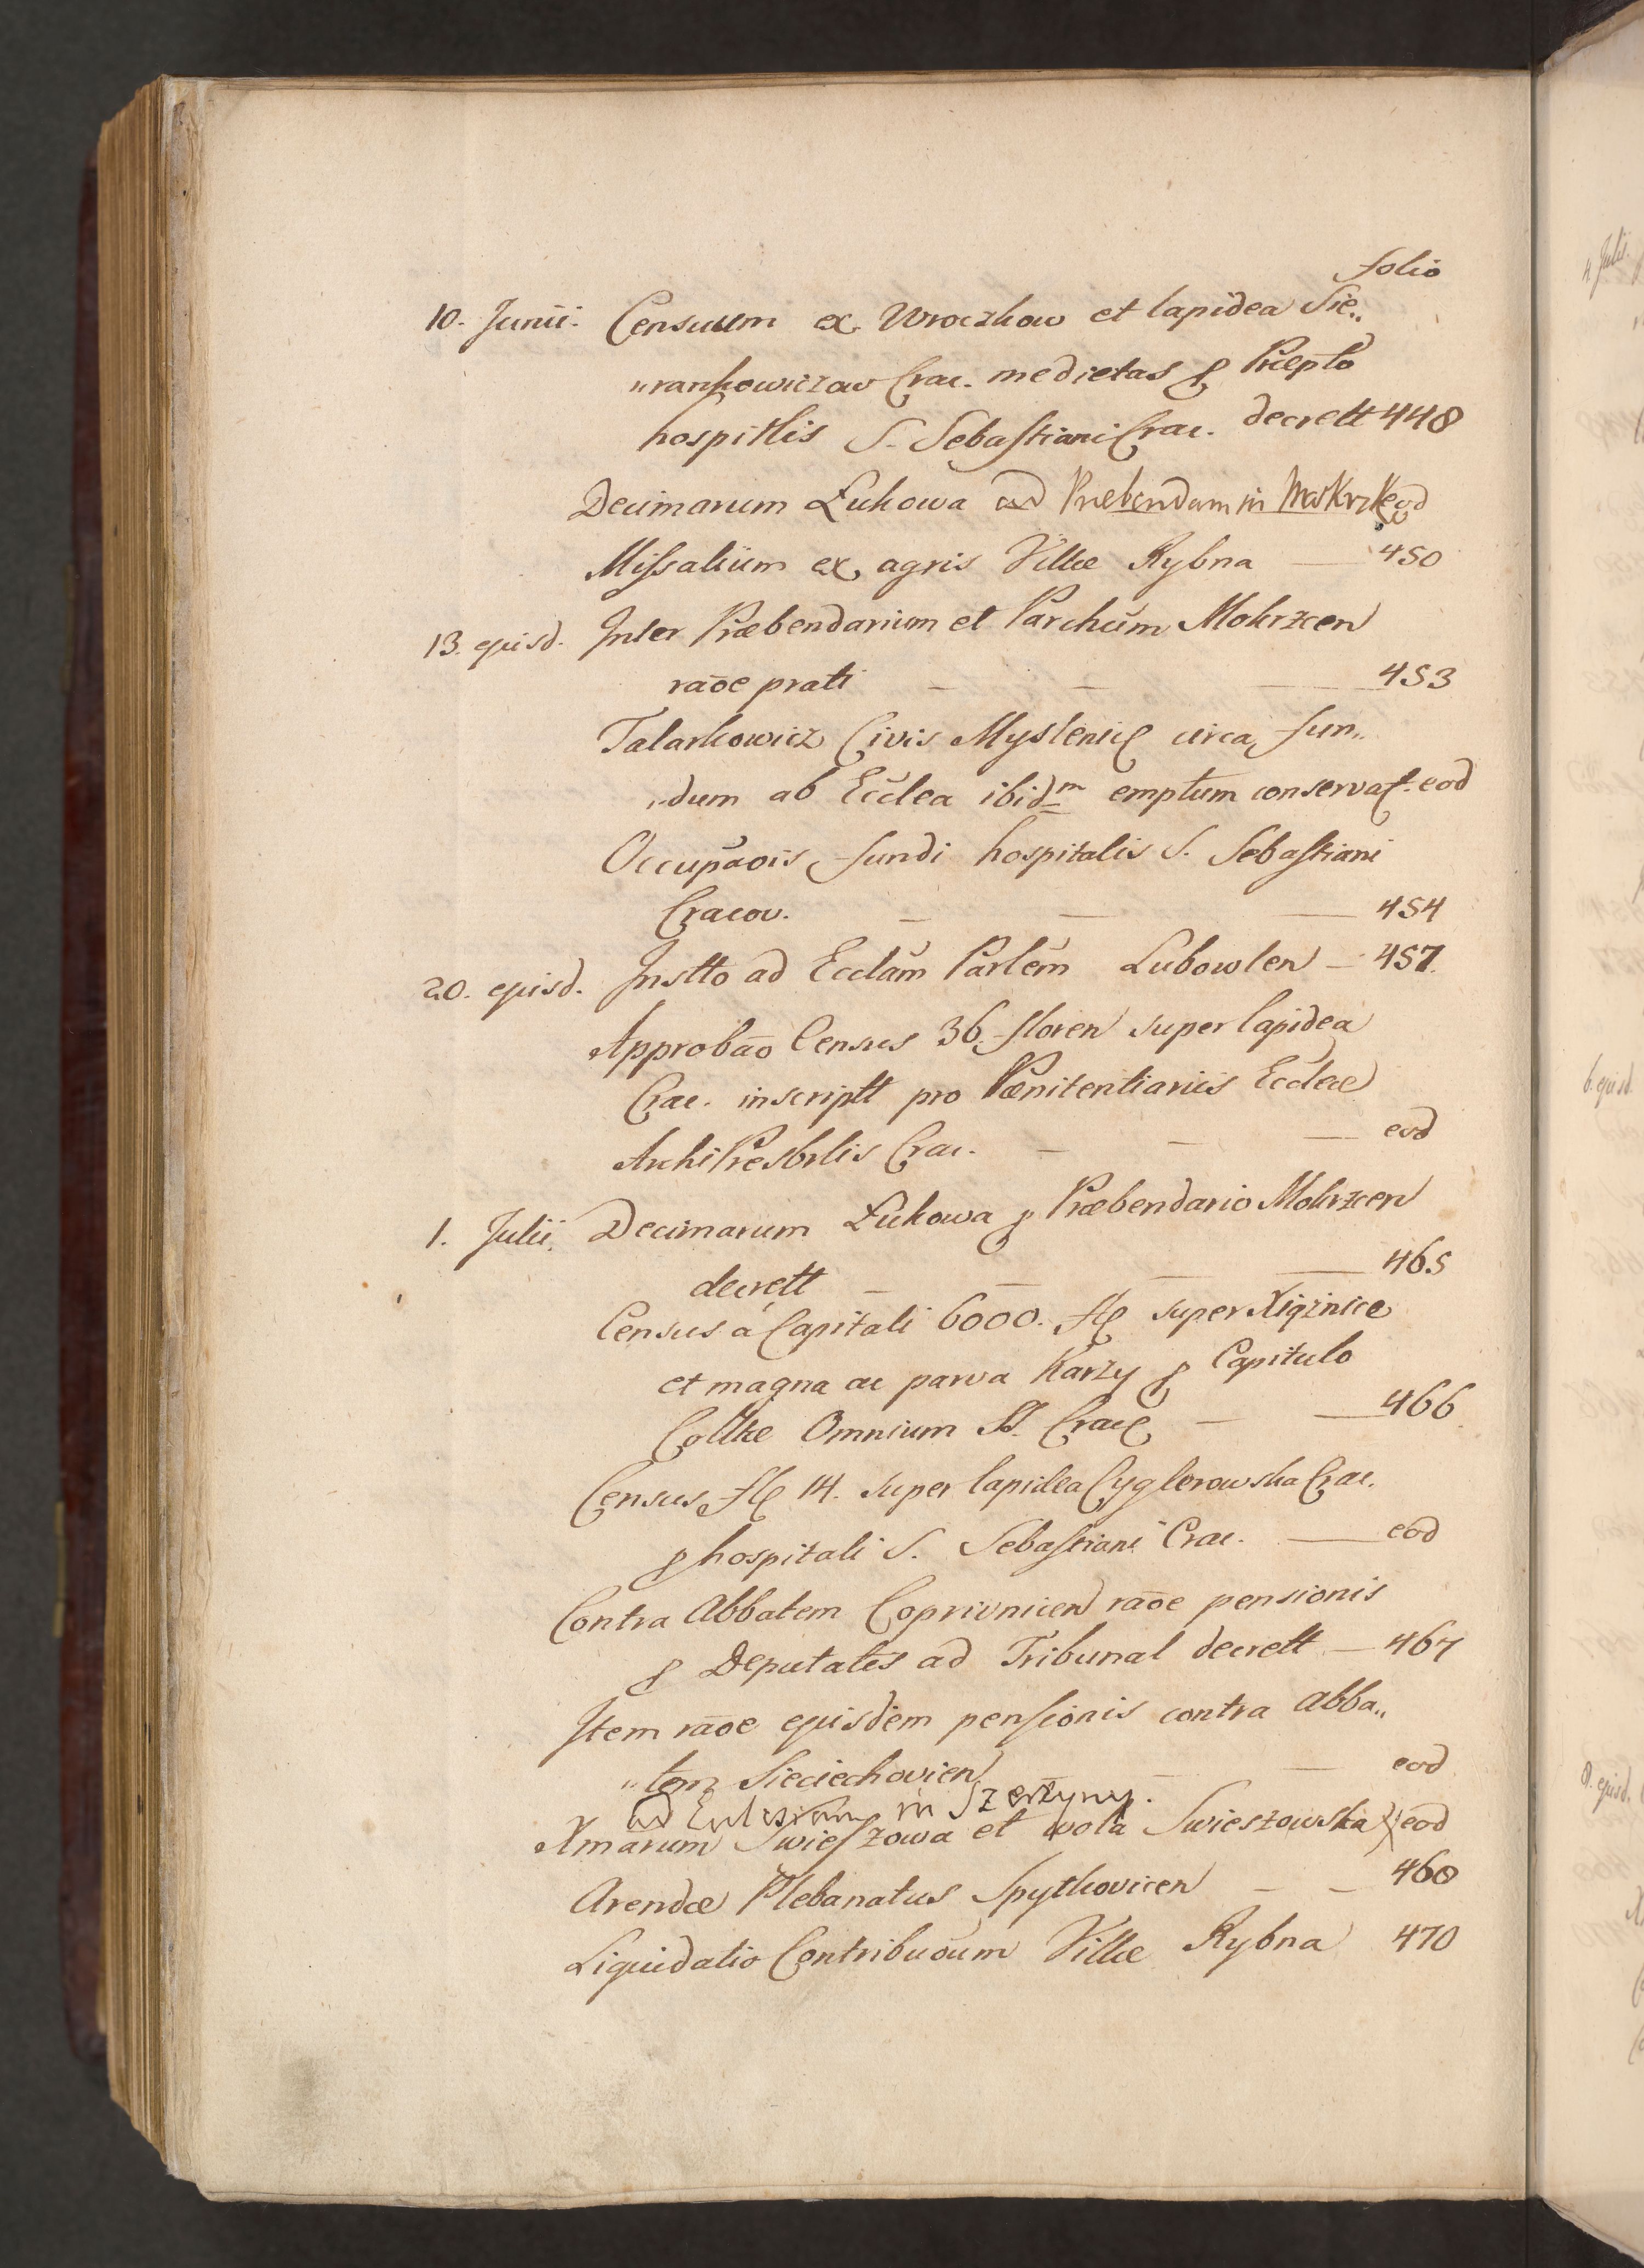 folio
10. Junii. Censuum ex Wroczkow et lapidea Sie„
„rankowiczow Crac. medietas ꝑ Præpto
hospitlis S. Sebastiani Crac. decrett 448
Decimarum Łukowa ad Præbendam in Mokrzk eod
Missalium ex agris Villæ Rybna — 450
13. ejusd. Inter Præbendarium et Parchum Mokrzcen
raõe prati — — — 453
Talarkowicz Civis Myslenic circa fun„
„dum ab Ecclea ibidm emptum conservat. eod
Occupãois fundi hospitalis S. Sebastiani
Cracov. — — — 454
20. ejusd. Instto ad Ecclam Parlem Lubowlen — 457.
Approbão Census 36. floren super lapidea
Crac. inscriptt pro Pænitentiariis Ecclæ
ArchiPresbrlis Crac. — — — eod
1. Julii. Decimarum Łukowa ꝑ Præbendario Mokrzcen
decrett — — — — 465
Census á Capitali 6000. fl super Xiąznice
et magna ac parva Karzy ꝑ Capitulo
Collttæ Omnium SS. Crac — — 466
Census fl 14. super lapidea Cyglerowska Crac.
ꝑ hospitali S. Sebastiani Crac. — eod
Contra Abbatem Coprivnicen raõe pensionis
ꝑ Deputates ad Tribunal decrett — 467
Item raõe ejusdem pensionis contra Abba„
„tem Sieciechovien — — eod
ad Eulesiam in Szerzyny.
Xmarum Swieszowa et wola Swieszowska eod
Arendæ Plebanatus Spythovicen — — 468
Liquidatio Contribuõum Villæ Rybna 470
4 Julii.
6. ejusd.
8. ejusd.